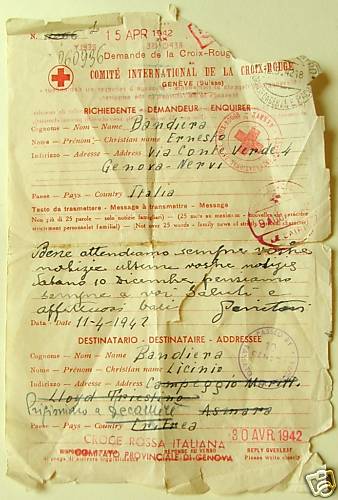 15 APR 1942
Demande de la Croix-Rouge
au
COMITÉ INTERNATIONAL DE LA CROIX-ROUGE
GENÈVE (Suisse)
RICHIEDENTE - DEMANDEUR - ENQUIRER
Cognome - Nom - Name Bandiera
Nome - Prénom - Christian name Ernesto
Indirizzo - Adresse - Address Via Conte Verde 4
Genova-Nervi
Paese - Pays - Country Italia
Testo da trasmettere - Message à transmettre - Message
Non più di 25 parole - solo notizie famigliari) (25 mots au maximum - nouvelles de caractère
strictement personnelet familial) - (Not over 25 words - family news of strictly personal character)
Bene attendiamo sempre vostre
notizie ultime vostre notizie
Sabato 10 Dicembre pensiamo
sempre a voi saluti e
affettuosi baci Genitori
Data - Date 11-4-1942
DESTINATARIO - DESTINATAIRE - ADDRESSEE
Cognome - Nom - Name Bandiera
Nome - Prénom - Christian name Licinio
Indirizzo - Adresse - Address Campeggio
Lloyd Triestino
Asmara
Paese - Pays - Country Eritrea
CROCE ROSSA ITALIANA
30 AVR 1942
COMITATO PROVINCIALE DI GENOVA
RÉPONSE AU VERSO
REPLY OVERLEAF
Prega di scrivere
Please write clearly
eBay